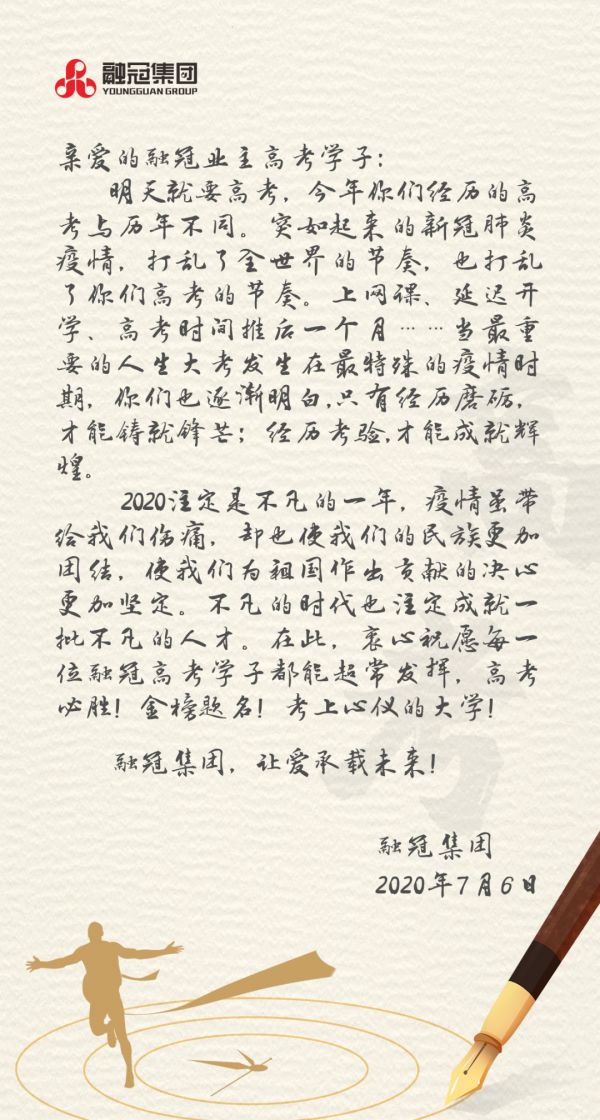 融冠集团
YOUNGGUAN GROUP
亲爱的融冠业主高考学子：
明天就要高考，今年你们经历的高
考与历年不同。突如起来的新冠肺炎
疫情，打乱了全世界的节奏，也打乱
了你们高考的节奏。上网课、延迟开
学、高考时间推后一个月……当最重
要的人生大考发生在最特殊的疫情时
期，你们也逐渐明白,只有经历磨砺,
才能铸就锋芒；经历考验,才能成就辉
煌。
2020注定是不凡的一年，疫情虽带
给我们伤痛，却也使我们的民族更加
团结，使我们为祖国作出贡献的决心
更加坚定。不凡的时代也注定成就一
批不凡的人才。在此，衷心祝愿每一
位融冠高考学子都能超常发挥，高考
必胜！金榜题名！考上心仪的大学！
融冠集团，让爱承载未来！
融冠集团
2020年7月6日